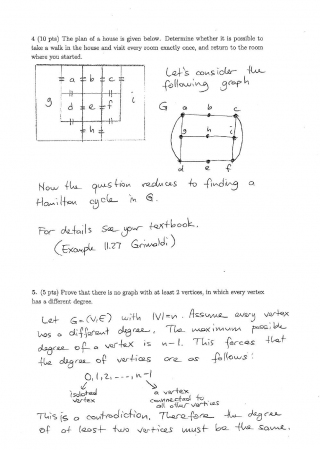 4 (10 pts) The plan of a house is given below. Determine whether it is possible to
take a walk in the house and visit every room exactly once, and return to the room
where you started.
Let's consider the
following graph
a b c
g d e f i
h
G
a b c
g h i
d e f
Now the question reduces to finding a
Hamilton cycle in G.
For details see your textbook.
(Example 11.27 Grimaldi)
5. (5 pts) Prove that there is no graph with at least 2 vertices, in which every vertex
has a different degree.
Let G=(V,E) with |V|=n. Assume every vertex
has a different degree. The maximum possible
degree of a vertex is n-1. This forces that
the degree of vertices are as follows:
0,1,2,...,n-1
isolated vertex
a vertex
connected to
all other vertices
This is a contradiction. Therefore the degree
of at least two vertices must be the same.